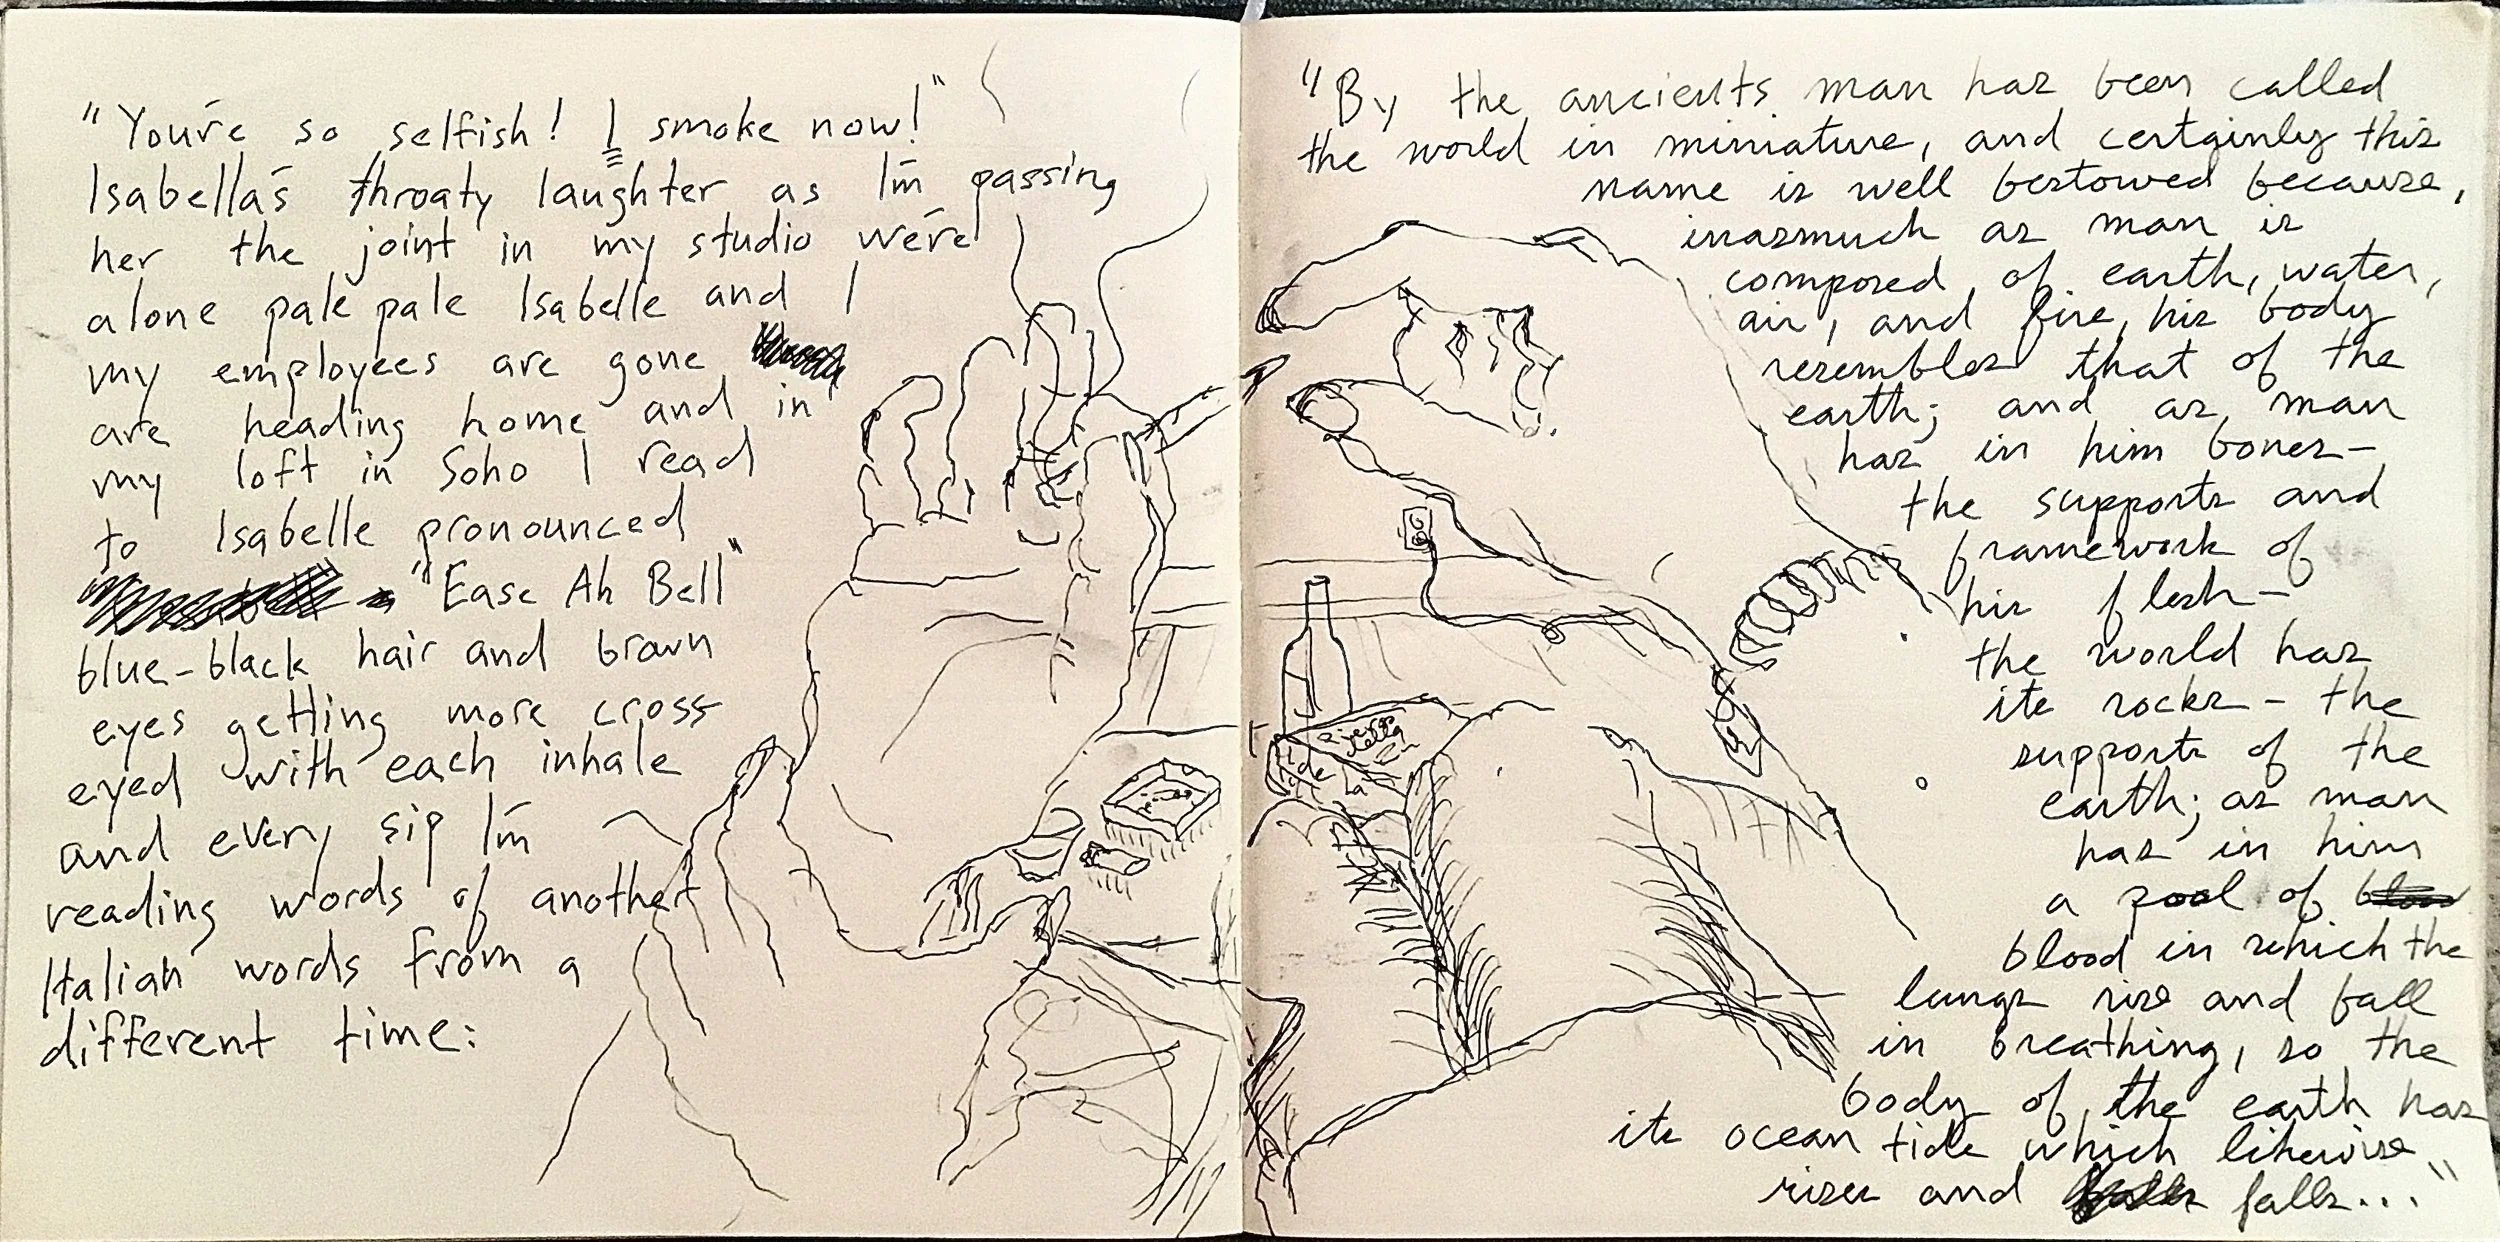 "You're so selfish! I smoke now!"
Isabella's throaty laughter as I'm passing
her the joint in my studio we're
alone pale pale Isabelle and I
my employees are gone
are heading home and in
my loft in Soho I read
to Isabelle pronounced
"Ease Ah Bell"
blue-black hair and brown
eyes getting more cross
eyed with each inhale
and every sip I'm
reading words of another
Italian words from a
different time:
"By the ancients man has been called
the world in miniature, and certainly this
name is well bestowed because,
inasmuch as man is
composed of earth, water,
air, and fire, his body
resembles that of the
earth; and as man
has in him bones—
the supports and
framework of
his flesh—
the world has
its rocks – the
supports of the
earth; as man
has in him
a pool of
blood in which the
lungs rise and fall
in breathing, so the
body of the earth has
its ocean tide which likewise
rises and falls..."